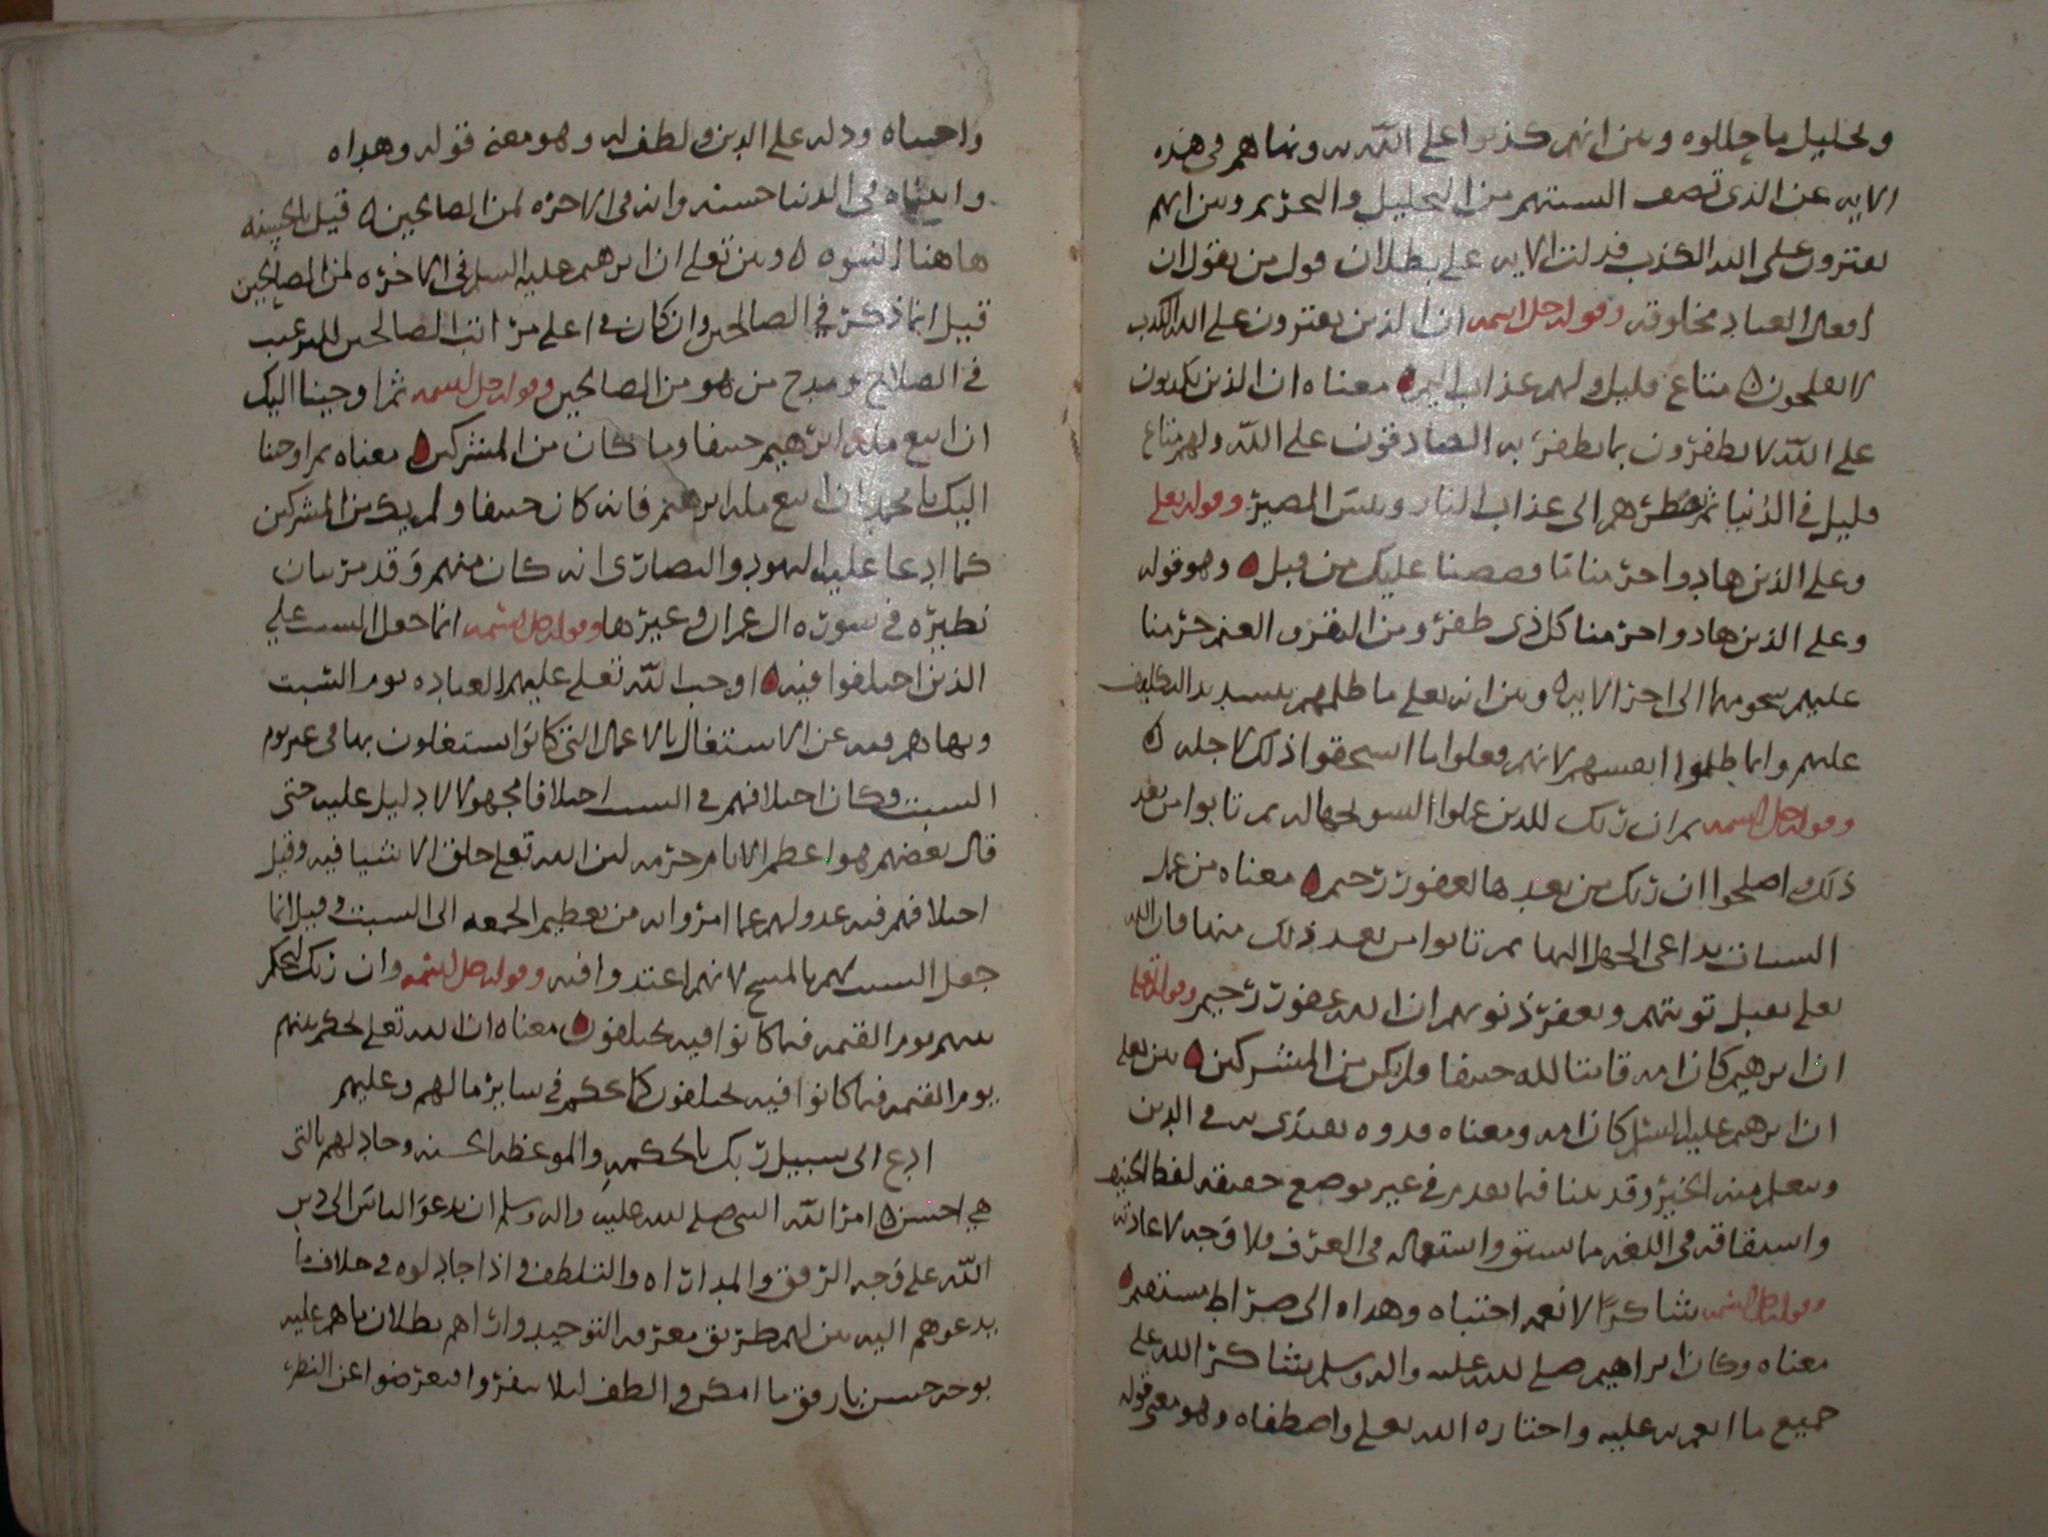 وتحليل ما حللوه وبين انهم كذبوا على الله به ونهاهم في هذه
الايه عن الذي تصف السنتهم من التحليل والتحريم وبين انهم
يفترون على الله الكذب فدلت الايه على بطلان قول من يقول ان
افعال العباد مخلوقه وقوله جل اسمه ان الذين يفترون على الله الكذب
لا يفلحون متاع قليل ولهم عذاب اليم معناه ان الذين يكذبون
على الله لا يظفرون بما يظفر به الصادقون على الله ولهم متاع
قليل في الدنيا ثم نضطرهم الى عذاب النار وبئس المصير وقوله تعلى
وعلى الذين هادوا حرمنا ما قصصنا عليك من قبل وهو قوله
وعلى الذين هادوا حرمنا كل ذي ظفر ومن البقر والغنم حرمنا
عليهم شحومهما الى اخر الايه وبين انه تعلى ما ظلمهم بتشديد التكليف
عليهم وانما ظلموا انفسهم لانهم فعلوا ما استحقوا ذلك لاجله
وقوله جل اسمه ثم ان ربك للذين عملوا السو بجهاله ثم تابوا من بعد
ذلك واصلحوا ان ربك من بعدها لغفور رحيم معناه من عمل
السيات بداعي الجهل اليها ثم تابوا من بعد ذلك منها فان الله
تعلى يقبل توبتهم ويغفر ذنوبهم ان الله غفور رحيم وقوله تعلى
ان ابرهيم كان امه قانتا لله حنيفا ولم يكن من المشركين بين تعلى
ان ابرهيم عليه السلم كان امه ومعناه قدوه يقتدى به في الدين
ويتعلم منه الخير وقد بينا فيما تقدم في غير موضع حقيقه لفظ الحنيف
واشتقاقه في اللغه ما سبق واستعماله في العرف فلا وجه لاعادته
وقوله جل اسمه شاكرا لانعمه اجتباه وهداه الى صراط مستقيم
معناه وكان ابراهيم صلى الله عليه واله وسلم شاكر الله على
جميع ما انعم به عليه واختاره الله تعلى واصطفاه وهو معنى قوله
واجتباه ودله على الدين ولطف له وهو معنى قوله وهداه
واتيناه في الدنيا حسنه وانه في الاخره لمن الصالحين قيل بالحسنه
هاهنا النبوه وبين تعلى ان ابرهيم عليه السلم في الاخره لمن الصالحين
قيل انما ذكر في الصالحين وان كان في اعلى مراتب الصالحين للترغيب
في الصلاح ومدح من هو من الصالحين وقوله جل اسمه ثم اوحينا اليك
ان اتبع مله ابرهيم حنيفا وما كان من المشركين معناه ثم اوحينا
اليك يا محمد ان اتبع مله ابرهيم فانه كان حنيفا ولم يك من المشركين
كما ادعا عليه اليهود والنصارى انه كان منهم وقد مر بيان
نظيره في سوره ال عمران وغيرها وقوله جل اسمه انما جعل السبت على
الذين اختلفوا فيه اوجب الله تعلى عليهم العباده يوم السبت
ونهاهم فيه عن الاشتغال بالاعمال التي كانوا يشتغلون بها في غير يوم
السبت وكان اختلافهم في السبت اختلافا مجهولا لا دليل عليه حتى
قال بعضهم هو اعظم الايام حرمه لان الله تعلى خلق الاشيا فيه وقيل
اختلافهم فيه عدولهم عما امروا به من تعظيم الجمعه الى السبت وقيل انما
جعل السبت لهم بالمسخ لانهم اعتدوا فيه وقوله جل اسمه وان ربك ليحكم
بينهم يوم القيمه فيما كانوا فيه يختلفون معناه ان الله تعلى يحكم بينهم
يوم القيمه فيما كانوا فيه يختلفون كما يحكم في ساير ما لهم وعليهم
ادع الى سبيل ربك بالحكمه والموعظه الحسنه وجادلهم بالتي
هي احسن امر الله النبي صلى الله عليه واله وسلم ان يدعو الناس الى دين
الله على وجه الرفق والمداراه والتلطف في اذا جادلوه في خلاف ما
يدعوهم اليه بين لهم طريق معرفه التوحيد واراهم بطلان ما هم عليه
بوجه حسن بارفق ما امكن والطف ليلا ينفروا فيعرضوا عن النظر